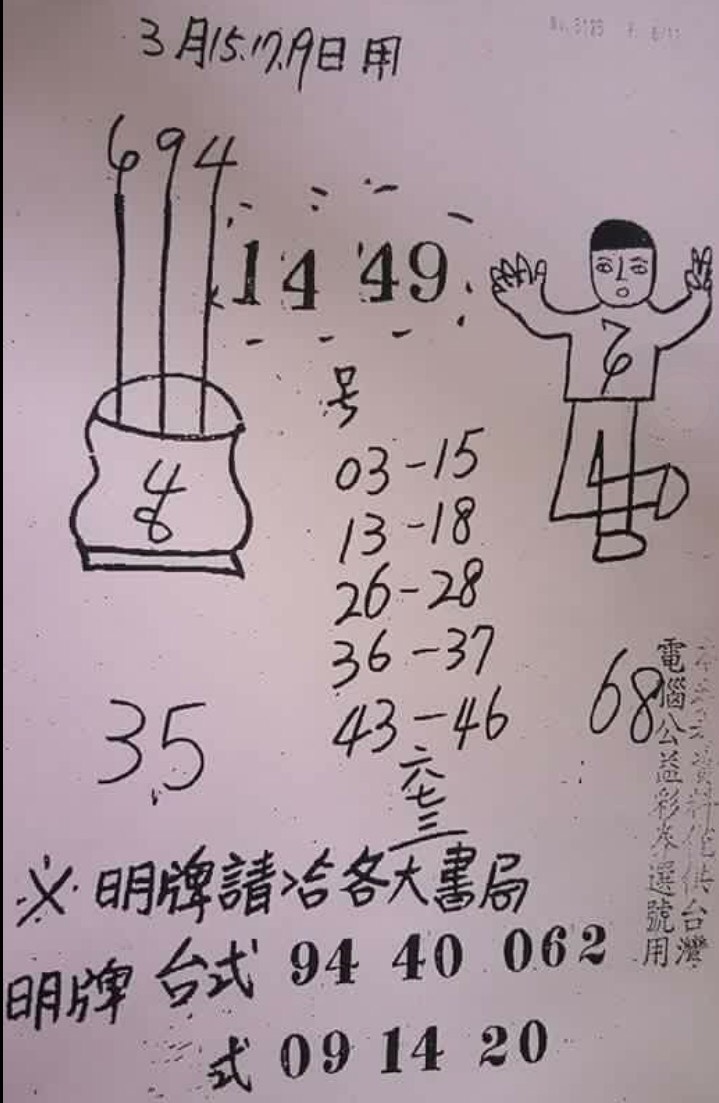 3月15.17.19日用
694
14 49
号
7
6
4
8
03-15
13-18
26-28
36-37
43-46
35
68
六
七
三
※明牌請洽各大書局
明牌 台式 94 40 062
式 09 14 20
資料僅供台灣
電腦公益彩券選號用